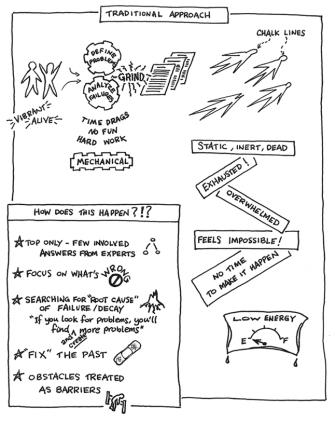 TRADITIONAL APPROACH
DEFINE
PROBLEM
ANALYZE
FAILURES
GRIND
VIBRANT
ALIVE
TIME DRAGS
NO FUN
HARD WORK
MECHANICAL
CHALK LINES
STATIC, INERT, DEAD
EXHAUSTED!
OVERWHELMED
FEELS IMPOSSIBLE!
NO TIME
TO MAKE IT HAPPEN
LOW ENERGY
E F
HOW DOES THIS HAPPEN?!?
TOP ONLY - FEW INVOLVED
ANSWERS FROM EXPERTS
FOCUS ON WHAT'S WRONG
SEARCHING FOR "ROOT CAUSE"
OF FAILURE/DECAY
"If you look for problems, you'll
find more problems"
"FIX" THE PAST
OBSTACLES TREATED
AS BARRIERS